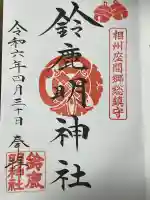 相州座間郷総鎮守
鈴鹿明神社
令和六年四月三十日 奉拝
鈴鹿
明神社